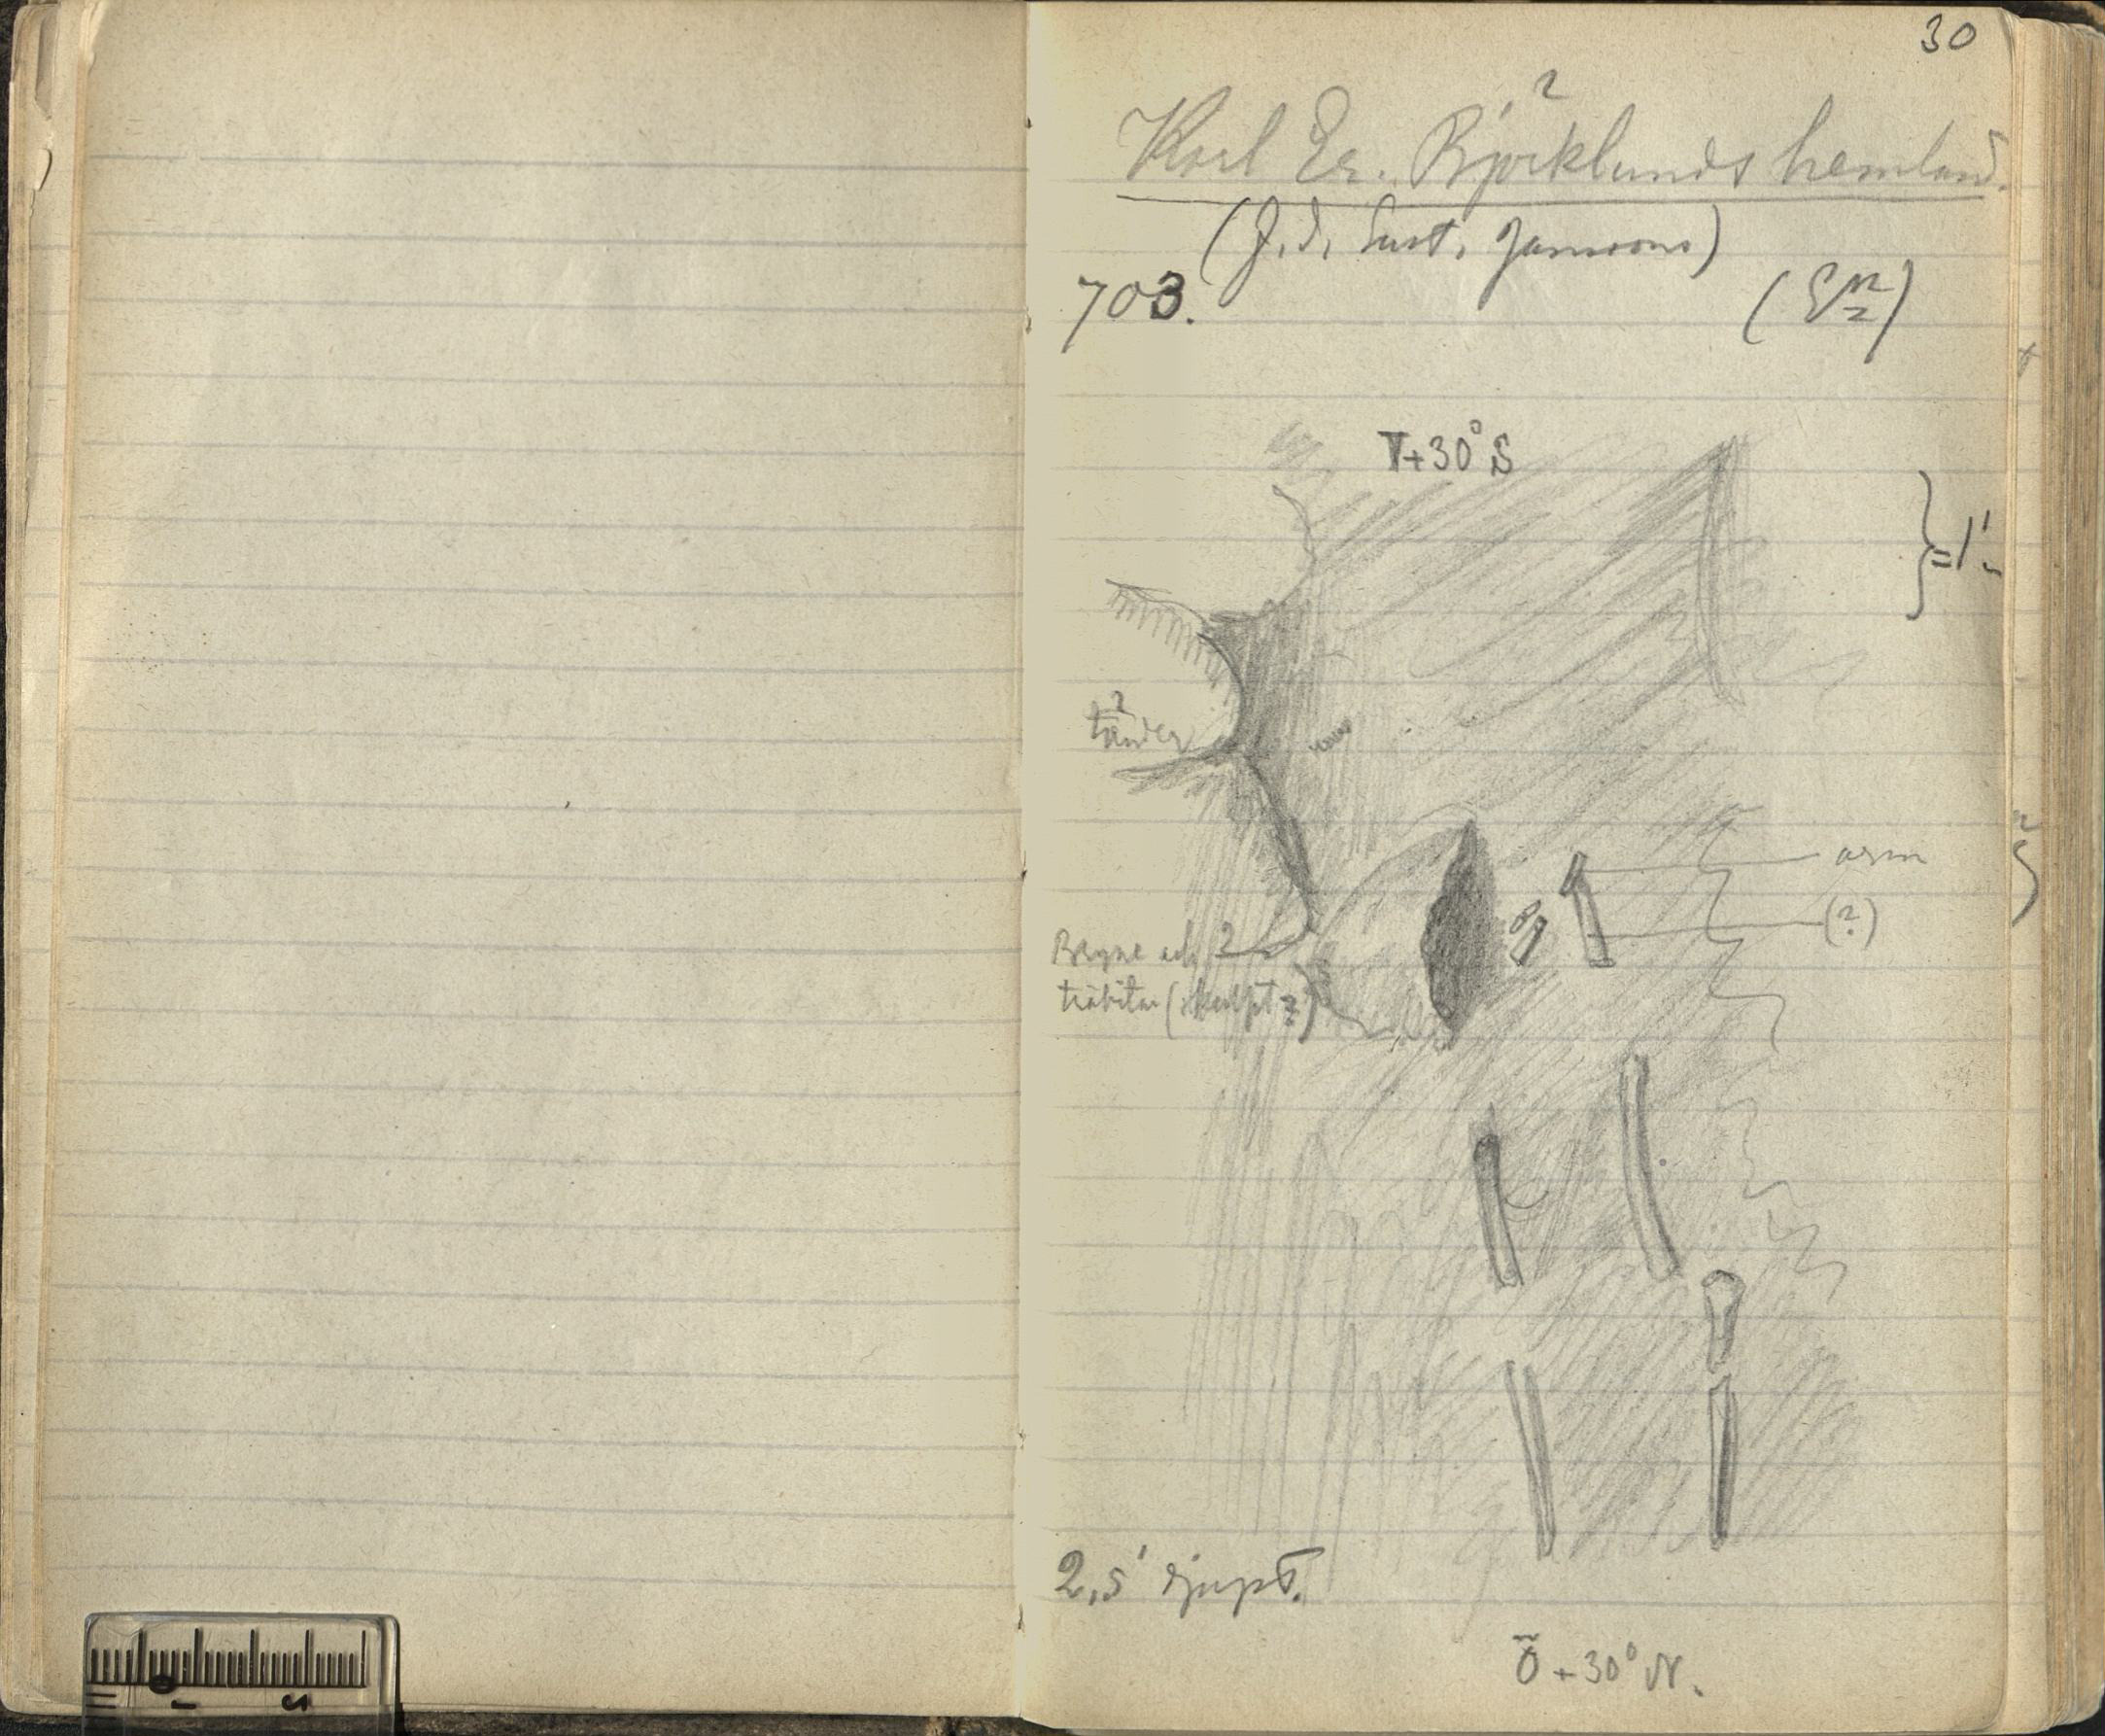 30
Karl Er. Björklunds hemland.
(J. d. Gust. Jansons)
703.
V+30° S
}=1'
?
tänder
arm
(?)
Bryne och ?
träbitar (skulpt ?)
2,5' djupt.
Ö+30° N.